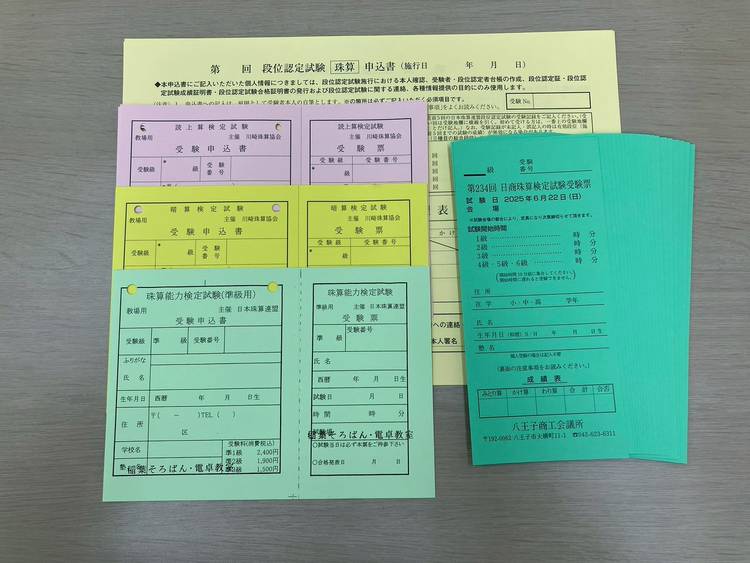 第　回 段位認定試験 珠算 申込書 (施行日　年　月　日)
◆本申込書にご記入いただいた個人情報につきましては、段位認定試験施行における本人確認、受験者・段位認定者台帳の作成、段位認定証・段位認
定試験成績証明書・段位認定試験合格証明書の発行および段位認定試験に関する連絡、各種情報提供の目的にのみ使用します。
受験No.
読上算検定試験
教場用 主催 川崎珠算協会
受験申込書
受験級 級 受験番号
読上算検定試験
主催 川崎珠算協会
受験票
受験級 受験番号
級
暗算検定試験
教場用 主催 川崎珠算協会
受験申込書
受験級 級 受験番号
暗算検定試験
主催 川崎珠算協会
受験票
受験級 受験番号
級
珠算能力検定試験(準級用)
教場用 主催 日本珠算連盟
受験申込書
受験級 準 級 受験番号
ふりがな
氏名
生年月日 西暦 年 月 日生
住所 〒( ー )TEL( )
区
学校名
塾名
受験料(消費税込)
準1級 2,400円
準2級 1,900円
準3級 1,500円
稲葉そろばん・電卓教室
珠算能力検定試験
準級用 主催 日本珠算連盟
受験票
準 級 受験番号
氏名
西暦 年 月 日生
試験日 月 日
時間 時 分
試験場
稲葉そろばん・電卓教室
○試験当日は必ず本票をご持参下さい
○合格発表日 月 日
級 受験番号
第234回 日商珠算検定試験受験票
試験日 2025年6月22日(日)
会場
※試験会場の都合により、定員になり次第締切らせて頂きます。
試験開始時間
1級 ............ 時 分
2級 ............ 時 分
3級 ............ 時 分
4級・5級・6級 ............ 時 分
(開始時間10分前に集合してください。
開始時間に遅れると受験できません。)
住所
在学 小・中・高 学年
氏名
生年月日(和暦) S・H 年 月 日生
塾名
個人受験の場合は記入不要
(裏面の注意事項をお読みください。)
成績表
みとり算 かけ算 わり算 合計 合否
八王子商工会議所
〒192-0062 八王子市大横町11-1 ☎042-623-6311